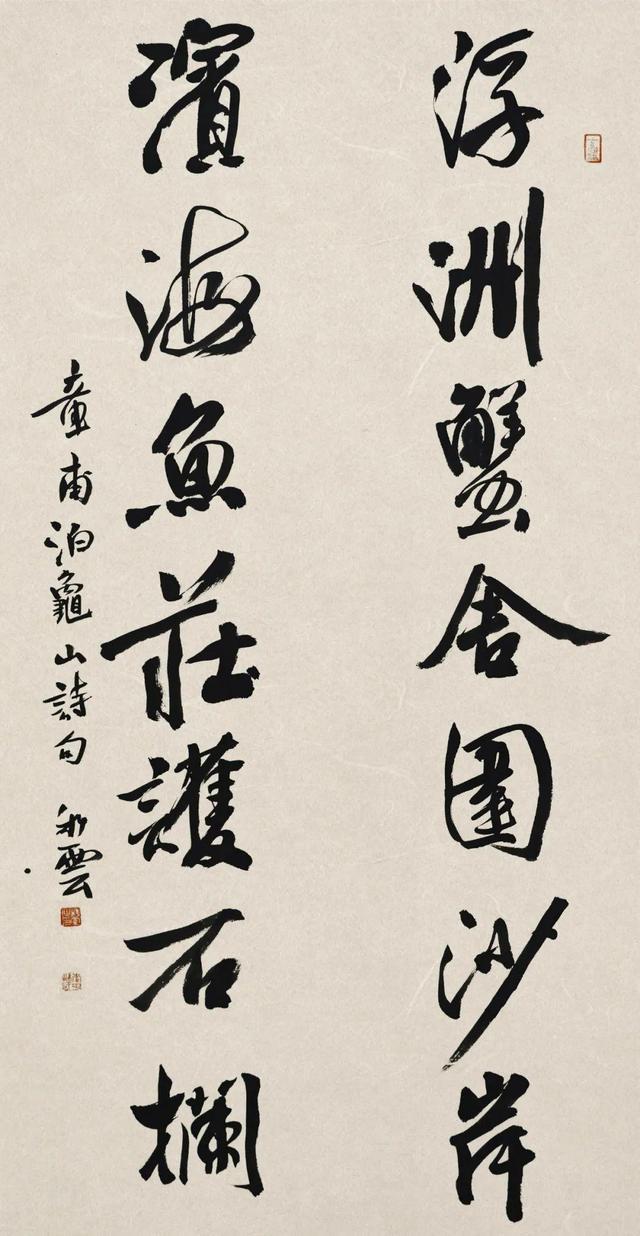 浮洲蟹舍圍沙岸
濱海魚莊護石欄
章甫泊龜山詩句 雲